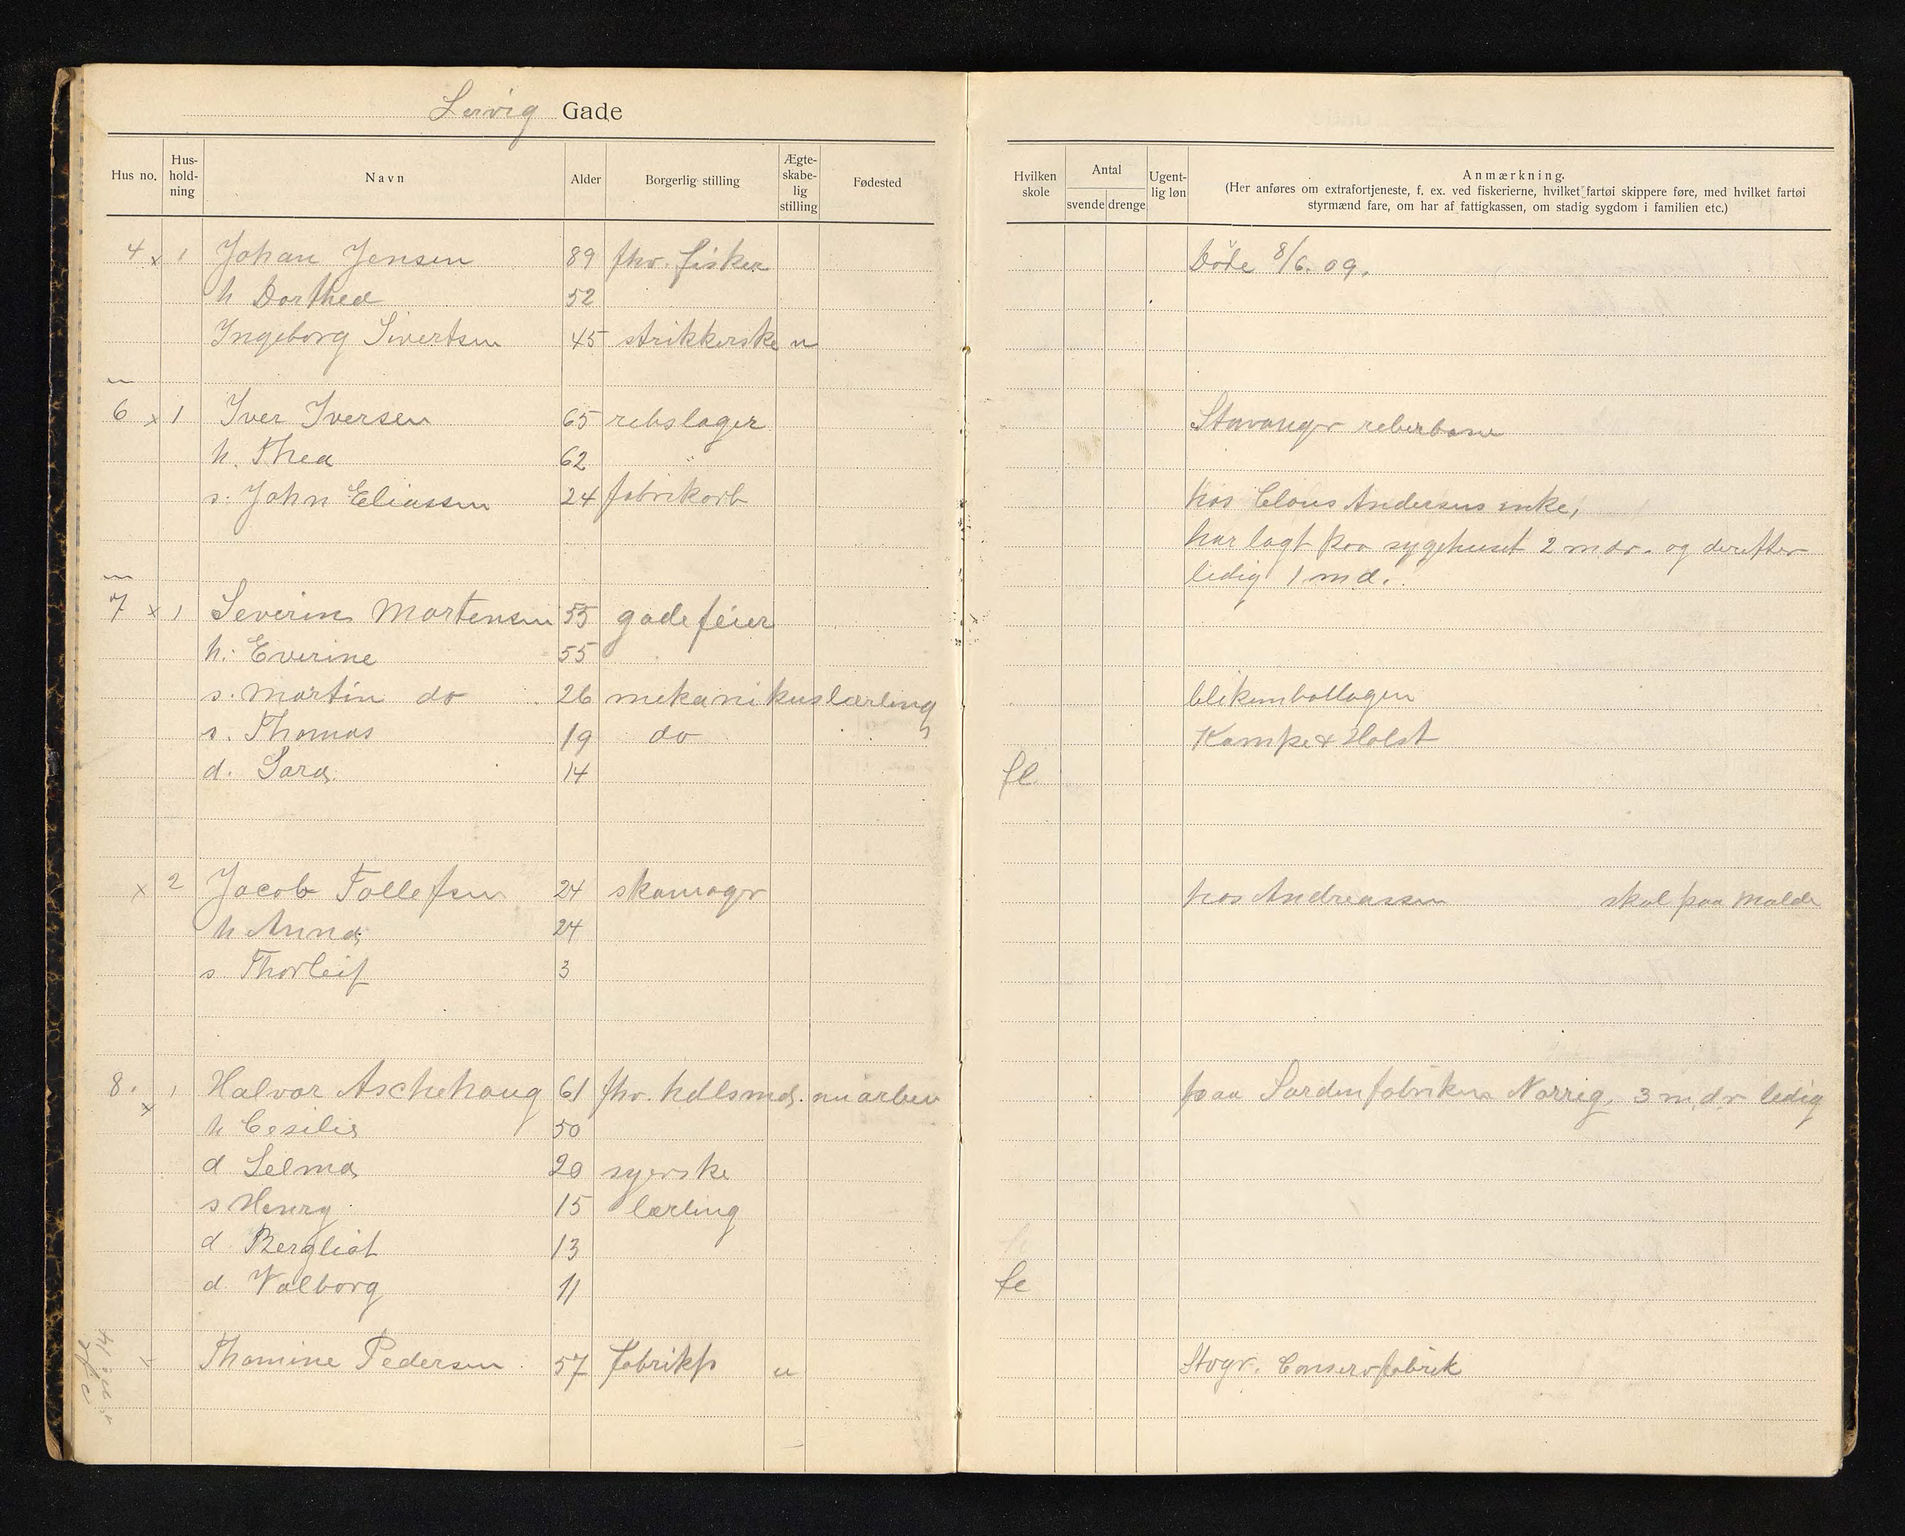 Lervig Gade
Hus no. Hus-hold-ning Navn Alder Borgerlig stilling Ægte-skabe-lig stilling Fødested
4 x 1 Johan Jensen 89 fhv. fisker
h Dorthea 52
Ingeborg Sivertsen 45 strikkerske u
6 x 1 Iver Iversen 65 rebslager
h. Thea 62
s. John Eliassen 24 fabrikarb
7 x 1 Severin Mortensen 55 gadefeier
h. Everine 55
s. Martin do 26 mekanikuslærling
s. Thomas 19 do
d. Sara 14
x 2 Jacob Tollefsen 24 skomager
h Anna 24
s Thorleif 3
8. x 1 Halvor Aschehoug 61 fhv. hdlsmd. nu arbei
h Cesilie 50
d Selma 20 syerske
s Henry 15 lærling
d Bergliot 13
d. Valborg 11
Thomine Pedersen 57 fabrikp u
Hvilken skole Antal svende drenge Ugent-lig løn Anmærkning.
(Her anføres om extrafortjeneste, f. ex. ved fiskerierne, hvilket fartøi skippere føre, med hvilket fartøi
styrmænd fare, om har af fattigkassen, om stadig sygdom i familien etc.)
Døde 8/6. 09.
Stavanger reberbane
hos Claus Andersens enke,
har lagt paa sygehuset 2 mdr. og derefter
ledig 1 md.
blikemballagen
Kampe & Holst
fl
hos Andreassen skal paa Molde
paa Sardinfabriken Norrig. 3 mdr ledig
fl
Stvgr. Conservfabrik